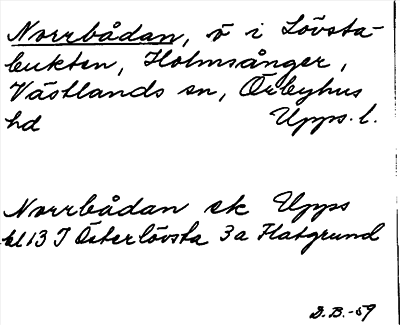 Norrbådan, ö i Lövsta-
bukten, Holmsånger,
Västlands sn, Örbyhus
hd Upps. l.
Norrbådan ek Upps
bl 13 J Österlövsta 3a Flatgrund
D.B.-59